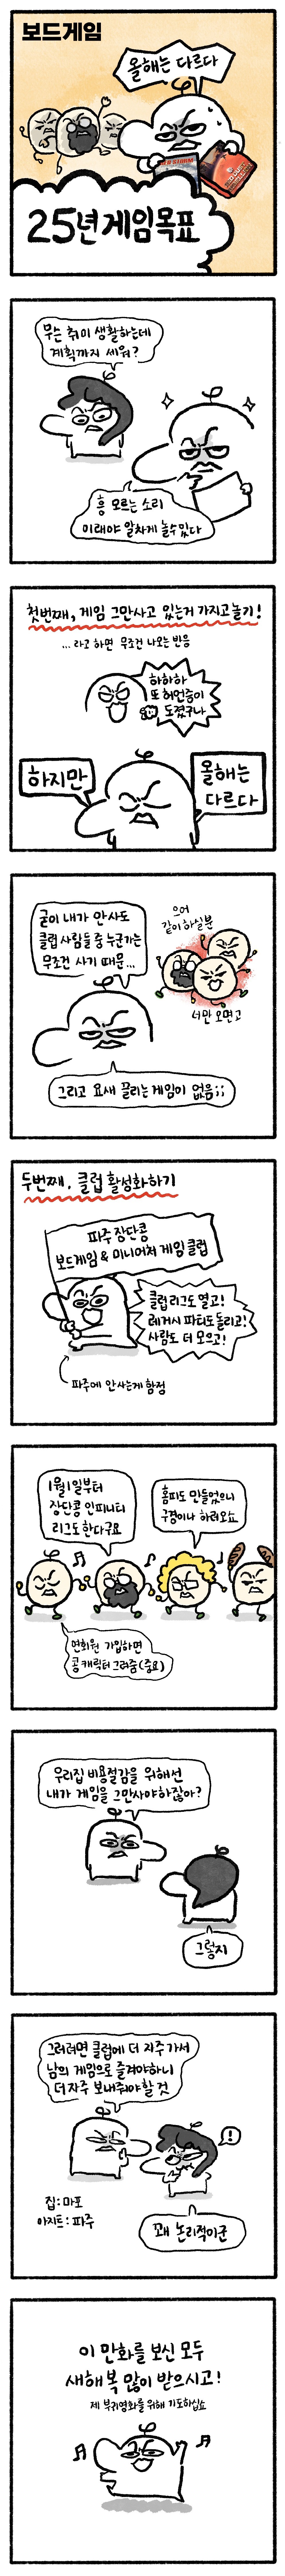 보드게임
올해는 다르다
25년 게임목표
무슨 취미 생활하는데
계획까지 세워?
흥 모르는 소리
이래야 알차게 놀수있다
첫번째, 게임 그만사고 있는거 가지고놀기!
... 라고 하면 무조건 나오는 반응
하하하
또 허언증이
도졌구나
하지만
올해는
다르다
굳이 내가 안사도
클럽 사람들 중 누군가는
무조건 사기 때문...
으어
같이 하실분
너만 오면 고
그리고 요새 끌리는 게임이 없음;;
두번째, 클럽 활성화하기
파주 장단콩
보드게임 & 미니어쳐 게임 클럽
클럽 리그도 열고!
레거시 파티도 돌리고!
사람도 더 모으고!
파주에 안사는게 함정
1월1일부터
장단콩 인피니티
리그도 한다구요
홈피도 만들었으니
구경이나 하러오쇼
연회원 가입하면
콩 캐릭터 그려줌(중요)
우리집 비용절감을 위해선
내가 게임을 그만사야하잖아?
그렇지
그러려면 클럽에 더 자주 가서
남의 게임으로 즐겨야하니
더 자주 보내줘야 할 것
!
집: 마포
아지트: 파주
꽤 논리적이군
이 만화를 보신 모두
새해 복 많이 받으시고!
제 부귀영화를 위해 기도하십쇼